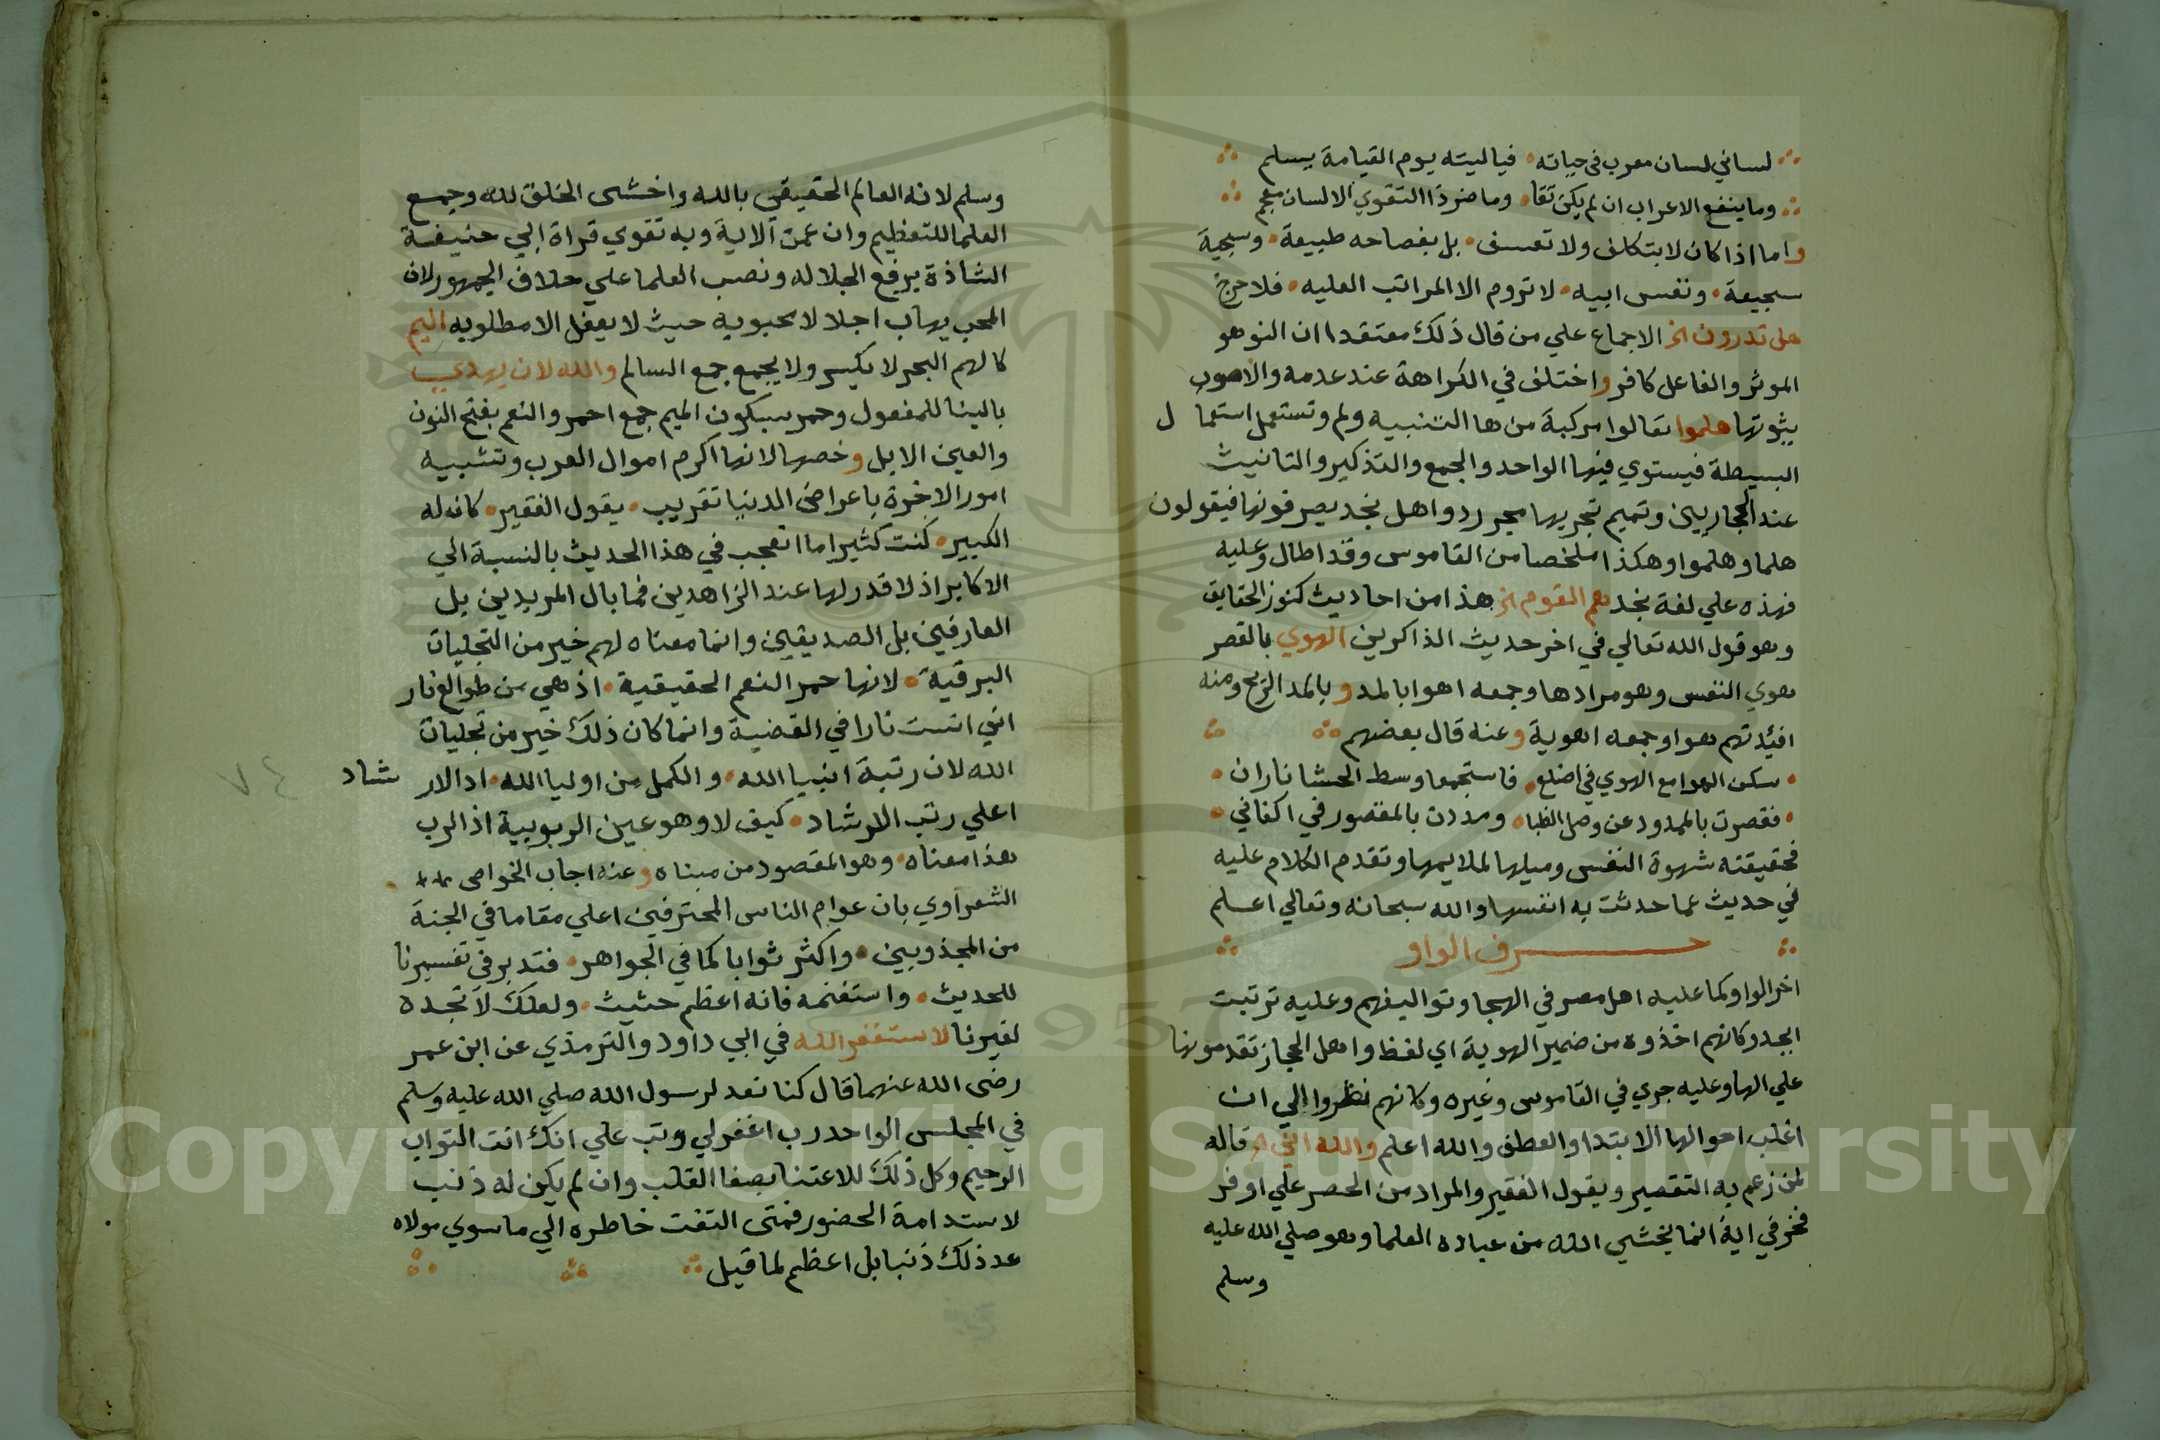 لساني لسان معرب في حياته فياليته يوم القيامة يسلم
وما ينفع الاعراب ان لم يكن تقا وما ضر ذا التقوي الا لسان معجم
واما اذا كان لا بتكلف ولا تعسف بل بفصاحه طبيعة وسجية
سجيعة ونفس ابيه لا تروم الا المراتب العليه فلا حرج
هل تدرون الخ الاجماع علي من قال ذلك معتقدا ان النو هو
الموثر والفاعل كافر واختلف في الكراهة عند عدمه والاصوب
بثوتها هلموا تعالوا مركبة من ها التنبيه ولم وتستعمل استعما ل
البسيطة فيستوي فيها الواحد والجمع والتذكير والتانيث
عند الحجازيين وتميم تجريها مجري رد واهل نجد يصرفونها فيقولون
هلما وهلموا وهكذا ملخصا من القاموس وقد اطال وعليه
فهذه علي لغة نجد هم القوم الخ هذا من احاديث كنوز الحقايق
وهو قول الله تعالي في اخر حديث الذاكرين الهوي بالقصر
هوي النفس وهو مرادها وجمعه اهوا بالمد وبالمد الريح ومنه
افئدتهم هوا وجمعه اهوية وعنه قال بعضهم
سكن الهوا مع الهوي في اضلع فاستجمعا وسط الحشا ناران
فقصرت بالممدود عن وصل الظبا ومددت بالمقصور في اكفاني
فحقيقته شهوة النفس وميلها لملايمها وتقدم الكلام عليه
في حديث عما حدثت به انفسها والله سبحانه وتعالي اعلم
حرف الواو
اخر الواو كما عليه اهل مصر في الهجا وتواليفهم وعليه ترتبت
ابجد وكانهم اخذوه من ضمير الهوية اي لفظ واهل الحجاز تقدمونها
علي الها وعليه جري في القاموس وغيره وكانهم نظروا الي ان
اغلب احوالها الابتدا والعطف والله اعلم والله اني قاله
لمن زعم به التقصير ويقول الفقير والمراد من الحصر علي اوفر
فخر في اية انما يخشي الله من عباده العلما وهو صلي الله عليه
وسلم
وسلم لانه العالم الحقيقي بالله واخشى الخلق لله وجمع
العلما للتعظيم وان عمت الاية وبه تقوي قراة ابي حنيفة
الشاذة برفع الجلاله ونصب العلما علي خلاف الجمهور لان
المحب يهاب اجلالا لمحبوبه حيث لا يعقل الا مطلوبه اليم
كالهم البحر لا يكسر ولا يجمع جمع السالم والله لان يهدي
بالبنا للمفعول وحمر بسكون الميم جمع احمر والنعم بفتح النون
والعين الابل وخصها لانها اكرم اموال العرب وتشبيه
امور الاخرة باعراض الدنيا تقريب يقول الفقير كان له
الكبير كنت كثيرا ما اتعجب في هذا الحديث بالنسبة الي
الاكابر اذ لا قدر لها عند الزاهدين فما بال المريدين بل
العارفين بل الصديقين وانما معناه لهم خير من التجليات
البرقية لانها حمر النعم الحقيقية اذ هي من طوالع نار
اني انست نارا في القضية وانما كان ذلك خير من تجليات
الله لان رتبة انبيا الله والكمل من اوليا الله اد الار شاد
اعلي رتب الارشاد كيف لا وهو عين الربوبية اذ الرب
هذا معناه وهو المقصود من مبناه وعنه اجاب الخواص
الشعراوي بان عوام الناس المحترفين اعلي مقاما في الجنة
من المجذوبين واكثر ثوابا كما في الجواهر فتدبر في تفسيرنا
للحديث واستغنمه فانه اعظم حثيث ولعلك لا تجده
لغيرنا لاستغفر الله في ابي داود والترمذي عن ابن عمر
رضى الله عنهما قال كنا نعد لرسول الله صلي الله عليه وسلم
في المجلس الواحد رب اغفر لي وتب علي انك انت التواب
الرحيم وكل ذلك للاعتنا بصفا القلب وان لم يكن له ذنب
لاستدامة الحضور فمتى التفت خاطره الي ما سوي مولاه
عد ذلك ذنبا بل اعظم لما قيل
٧٤
Copyright © King Saud University
1957